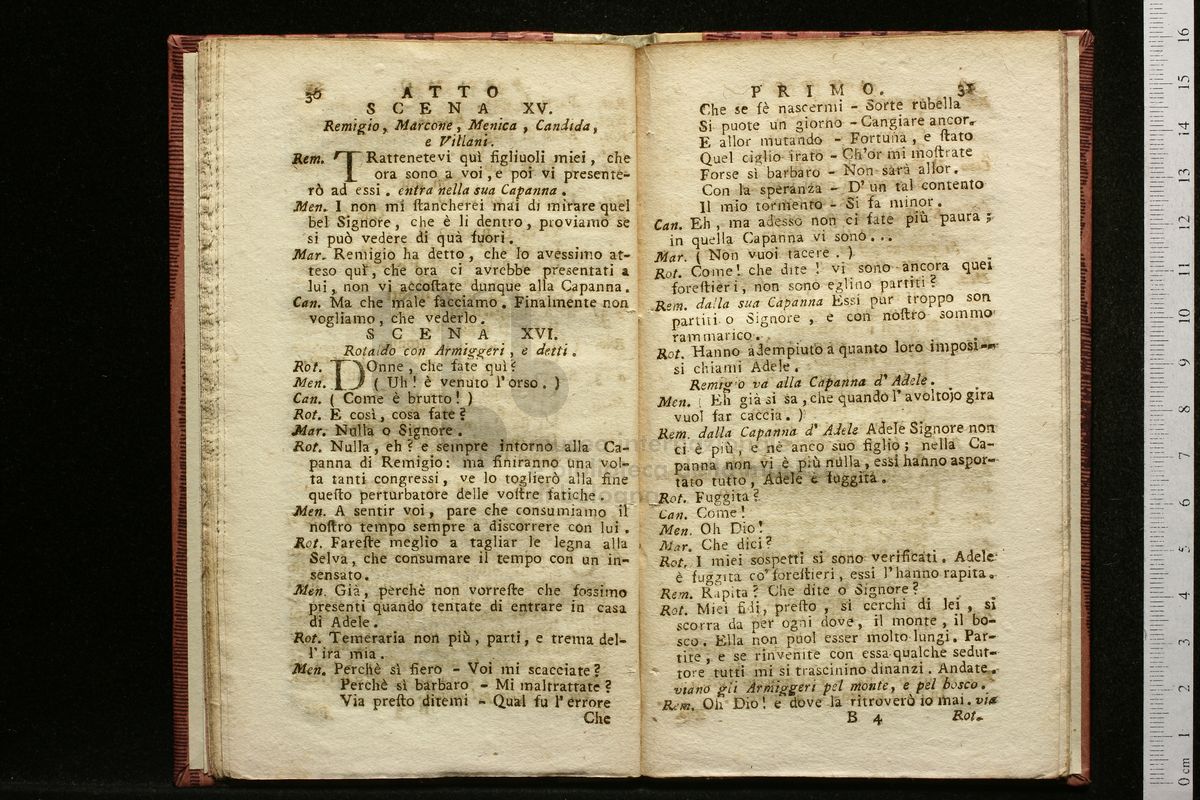 30 ATTO
SCENA XV.
Remigio, Marcone, Menica, Candida,
e Villani.
Rem. TRattenetevi quì figliuoli miei, che
ora sono a voi, e poi vi presente-
rò ad essi. entra nella sua Capanna.
Men. I non mi ſtancherei mai di mirare quel
bel Signore, che è lì dentro, proviamo se
si può vedere di quà fuori.
Mar. Remigio ha detto, che lo avessimo at-
teso quì, che ora ci avrebbe presentati a
lui, non vi accoſtate dunque alla Capanna.
Can. Ma che male facciamo. Finalmente non
vogliamo, che vederlo.
SCENA XVI.
Rotaldo con Armiggeri, e detti.
Rot. DOnne, che fate quì?
Men. (Uh! è venuto l'orso.)
Can. (Come è brutto!)
Rot. E così, cosa fate?
Mar. Nulla o Signore.
Rot. Nulla, eh? e sempre intorno alla Ca-
panna di Remigio: ma finiranno una vol-
ta tanti congressi, ve lo toglierò alla fine
queſto perturbatore delle voſtre fatiche.
Men. A sentir voi, pare che consumiamo il
noſtro tempo sempre a discorrere con lui.
Rot. Fareſte meglio a tagliar le legna alla
Selva, che consumare il tempo con un in-
sensato.
Men. Già, perchè non vorreſte che fossimo
presenti quando tentate di entrare in casa
di Adele.
Rot. Temeraria non più, parti, e trema del-
l'ira mia.
Men. Perchè sì fiero - Voi mi scacciate?
Perchè sì barbaro - Mi maltrattate?
Via preſto ditemi - Qual fu l'errore
Che
PRIMO. 31
Che se fè nascermi - Sorte rubella
Si puote un giorno - Cangiare ancor.
E allor mutando - Fortuna, e ſtato
Quel ciglio irato - Ch'or mi moſtrate
Forse sì barbaro - Non sarà allor.
Con la speranza - D'un tal contento
Il mio tormento - Si fa minor.
Can. Eh, ma adesso non ci fate più paura;
in quella Capanna vi sono...
Mar. (Non vuoi tacere.)
Rot. Come! che dite! vi sono ancora quei
foreſtieri, non sono eglino partiti?
Rem. dalla sua Capanna Essi pur troppo son
partiti o Signore, e con noſtro sommo
rammarico.
Rot. Hanno adempiuto a quanto loro imposi -
si chiami Adele.
Remigio va alla Capanna d'Adele.
Men. (Eh già si sa, che quando l'avoltojo gira
vuol far caccia.)
Rem. dalla Capanna d'Adele Adele Signore non
ci è più, e nè anco suo figlio; nella Ca-
panna non vi è più nulla, essi hanno aspor-
tato tutto, Adele è fuggita.
Rot. Fuggita?
Can. Come!
Men. Oh Dio!
Mar. Che dici?
Rot. I miei sospetti si sono verificati. Adele
è fuggita co' foreſtieri, essi l'hanno rapita.
Rem. Rapita? Che dite o Signore?
Rot. Miei fidi, preſto, si cerchi di lei, si
scorra da per ogni dove, il monte, il bo-
sco. Ella non puol esser molto lungi. Par-
tite, e se rinvenite con essa qualche sedut-
tore tutti mi si trascinino dinanzi. Andate.
viano gli Armiggeri pel monte, e pel bosco.
Rem. Oh Dio! e dove la ritroverò io mai. via
B 4 Rot.
0 cm 1 2 3 4 5 6 7 8 9 10 11 12 13 14 15 16